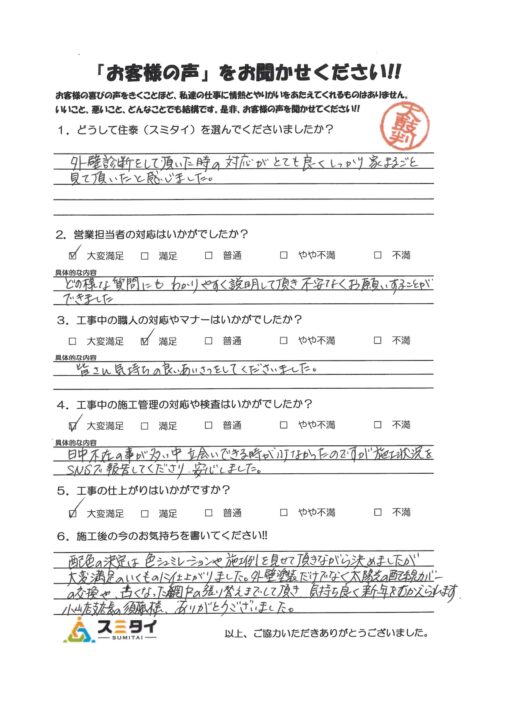 「お客様の声」をお聞かせください!!
お客様の喜びの声をきくことほど、私達の仕事に情熱とやりがいをあたえてくれるものはありません。
いいこと、悪いこと、どんなことでも結構です。是非、お客様の声を聞かせてください!!
太鼓判
1．どうして住泰（スミタイ）を選んでくださいましたか？
外壁診断をして頂いた時の対応がとても良くしっかり家まるごと
見て頂いたと感じました。
2．営業担当者の対応はいかがでしたか？
☑ 大変満足 □ 満足 □ 普通 □ やや不満 □ 不満
具体的な内容
どの様な質問にも わかりやすく説明して頂き不安なくお願いすることが
できました
3．工事中の職人の対応やマナーはいかがでしたか？
□ 大変満足 ☑ 満足 □ 普通 □ やや不満 □ 不満
具体的な内容
皆さん気持ちの良いあいさつをしてくださいました。
4．工事中の施工管理の対応や検査はいかがでしたか？
☑ 大変満足 □ 満足 □ 普通 □ やや不満 □ 不満
具体的な内容
日中不在の事が多い中 立会いできる時が なかったのですが 施工状況を
SNSで報告してくださり 安心しました。
5．工事の仕上がりはいかがですか？
☑ 大変満足 □ 満足 □ 普通 □ やや不満 □ 不満
6．施工後の今のお気持ちを書いてください!!
配色の決定は 色シュミレーションや施工例を見せて頂きながら決めましたが
大変満足のいくものに仕上がりました。外壁塗装だけでなく太陽光の配線カバー
の交換や、古くなった網戸の張り替えまでして頂き 気持ち良く新年をむかえられます
小山店支店長の須藤様、ありがとうございました。
スミタイ
SUMITAI
以上、ご協力いただきありがとうございました。